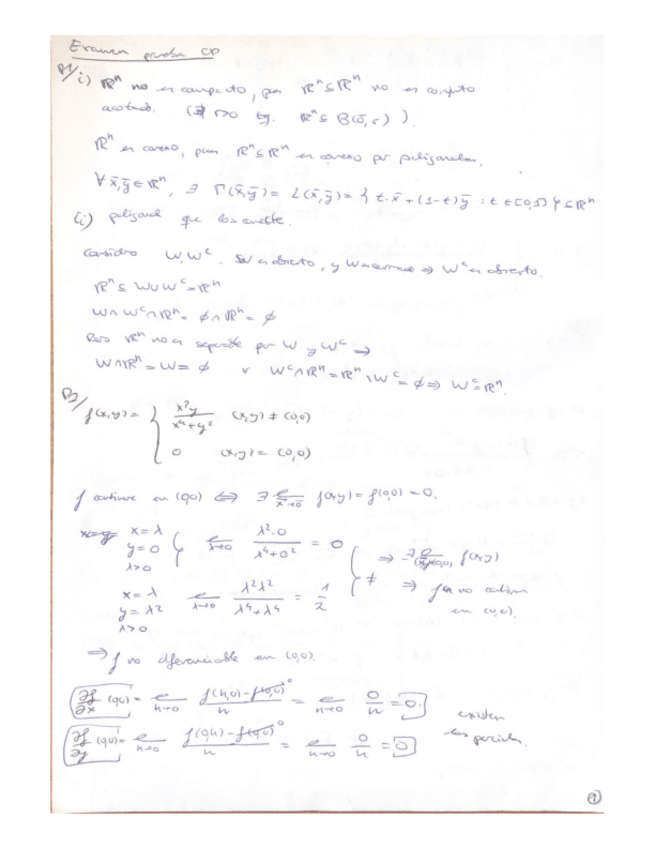 Examen prueba CP
P1/ i) ℝⁿ no es compacto, pues ℝⁿ ⊆ ℝⁿ no es conjunto
acotado. (∄ r>0 tq. ℝⁿ ⊆ B(ō,r)).
ℝⁿ es conexo, pues ℝⁿ ⊆ ℝⁿ es conexo por poligonales.
∀ x̄,ȳ ∈ ℝⁿ, ∃ Γ(x̄,ȳ) = L(x̄,ȳ) = { t·x̄ + (1-t)ȳ : t ∈ [0,1] } ⊆ ℝⁿ
(ii) poligonal que los conecte.
Considero W, W^c. W es abierto, y W es cerrado ⇒ W^c es abierto.
ℝⁿ ⊆ W ∪ W^c = ℝⁿ
W ∩ W^c ∩ ℝⁿ = ∅ ∩ ℝⁿ = ∅
Pero ℝⁿ no es separable por W y W^c ⇒
W ∩ ℝⁿ = W = ∅ v W^c ∩ ℝⁿ = ℝⁿ \ W = ∅ ⇒ W^c = ℝⁿ.
P2/ f(x,y) = { x²y / (x⁴+y²) (x,y) ≠ (0,0)
0 (x,y) = (0,0)
f continua en (0,0) ⟺ ∃ ℓ x̄→0 f(x,y) = f(0,0) = 0.
x = λ
y = 0
λ>0 } ℓ λ→0 λ²·0 / (λ⁴+0²) = 0
x = λ
y = λ²
λ>0 ℓ λ→0 λ²λ² / (λ⁴+λ⁴) = 1/2
≠ ⇒ ∄ ℓ (x,y)→(0,0) f(x,y)
⇒ f no es contin
en (0,0).
⇒ f no diferenciable en (0,0).
∂f/∂x (0,0) = ℓ h→0 (f(h,0) - f(0,0)⁰) / h = ℓ h→0 0/h = 0.
∂f/∂y (0,0) = ℓ h→0 (f(0,h) - f(0,0)⁰) / h = ℓ h→0 0/h = 0
existen
las parciales.
1